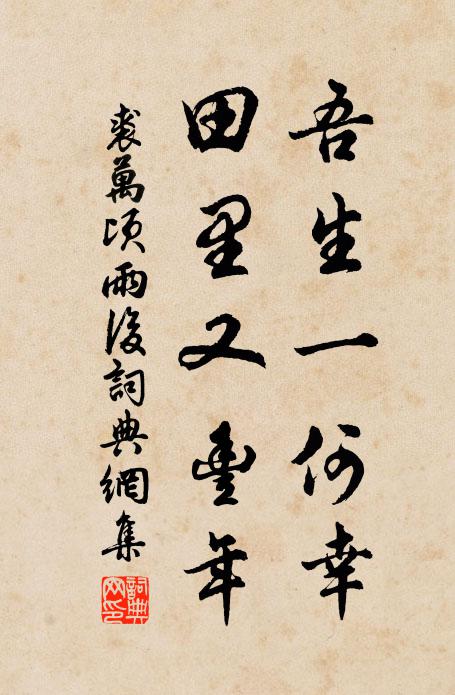 吾生一何幸
田里又豐年
裘萬頃雨後詞典網集
詞典網印